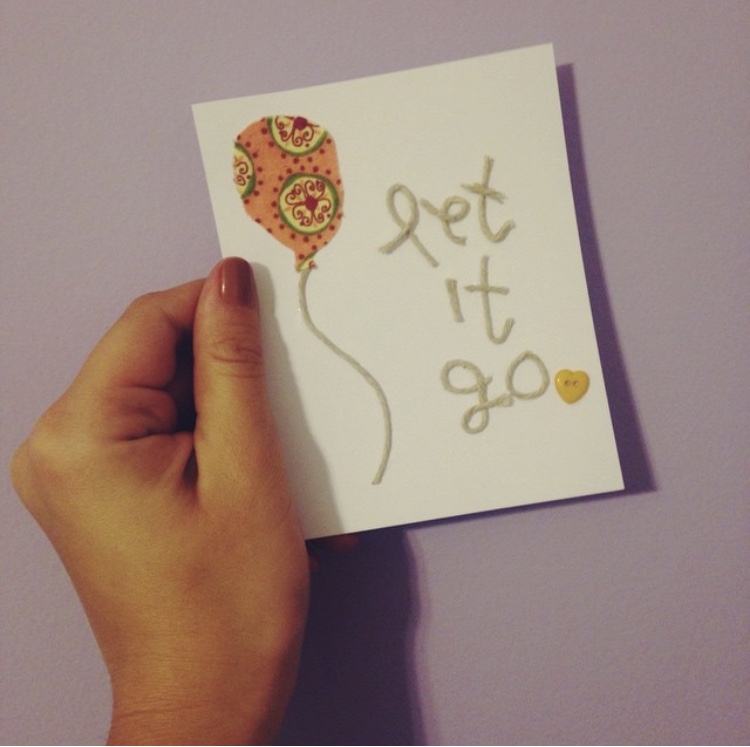 let
it
go